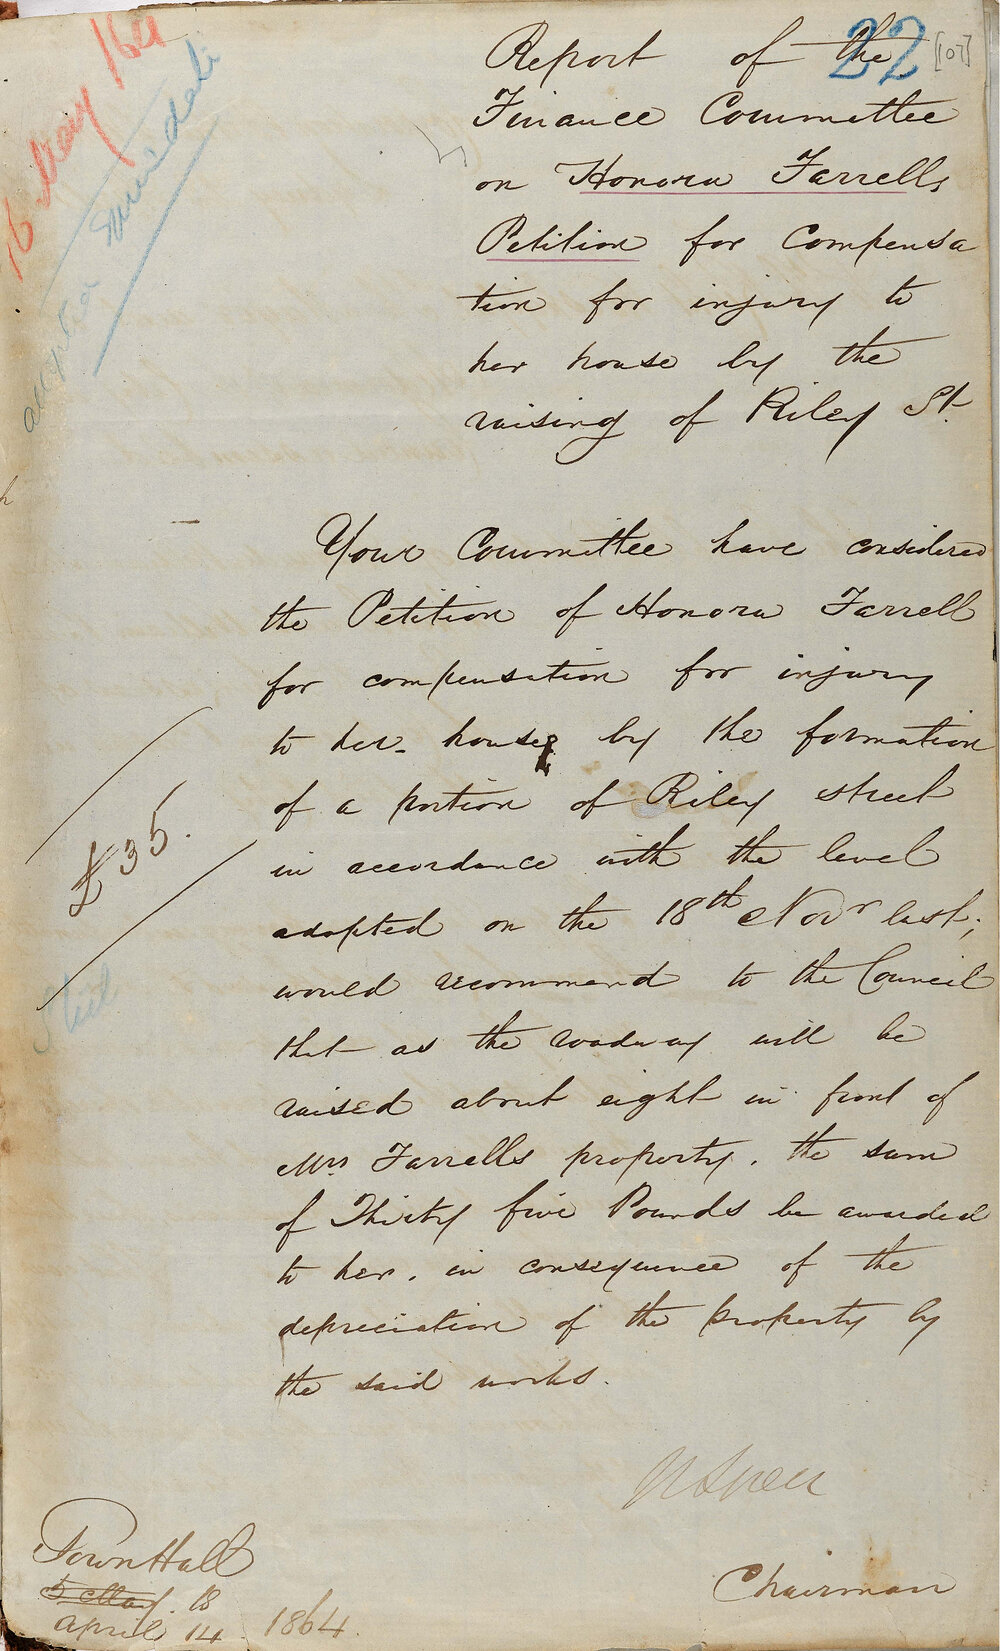 16 May 164
22
[107]
Report of the
Finance Committee
on Honora Farrells
Petition for Compensa
tion for injury to
her house by the
raising of Riley St.
Your Committee have considered
the Petition of Honora Farrell
for compensation for injury
to her house by the formation
of a portion of Riley street
in accordance with the level
adopted on the 18th Novr last,
would recommend to the Council
that as the roadway will be
raised about eight in front of
Mrs Farrells property, the sum
of Thirty five Pounds be awarded
to her, in consequence of the
depreciation of the property by
the said works.
£35.
Chairman
Town Hall
5 May. 18
April 14 1864.